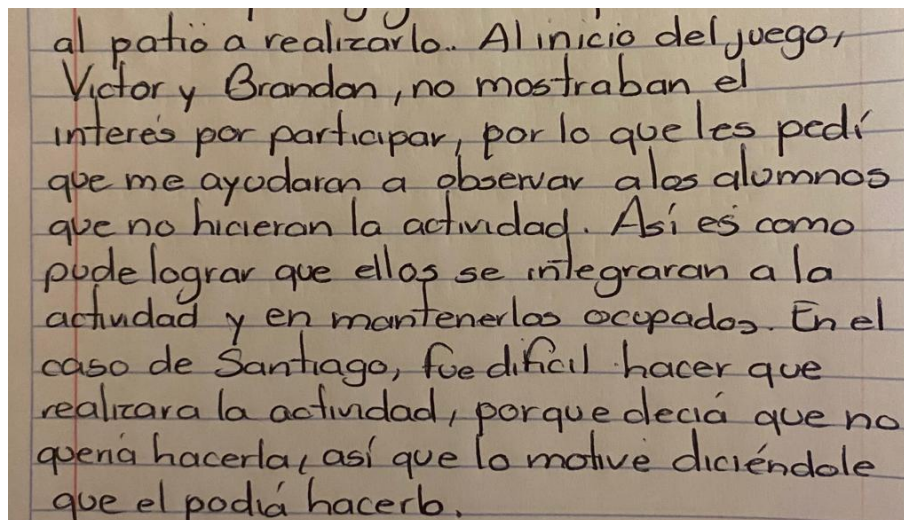 al patio a realizarlo.. Al inicio del juego,
Victor y Brandon, no mostraban el
interés por participar, por lo que les pedí
que me ayudaran a observar a los alumnos
que no hicieran la actividad. Así es como
pude lograr que ellos se integraran a la
actividad y en mantenerlos ocupados. En el
caso de Santiago, fue dificil hacer que
realizara la actividad, porque decía que no
quería hacerla, así que lo motive diciéndole
que el podía hacerlo.